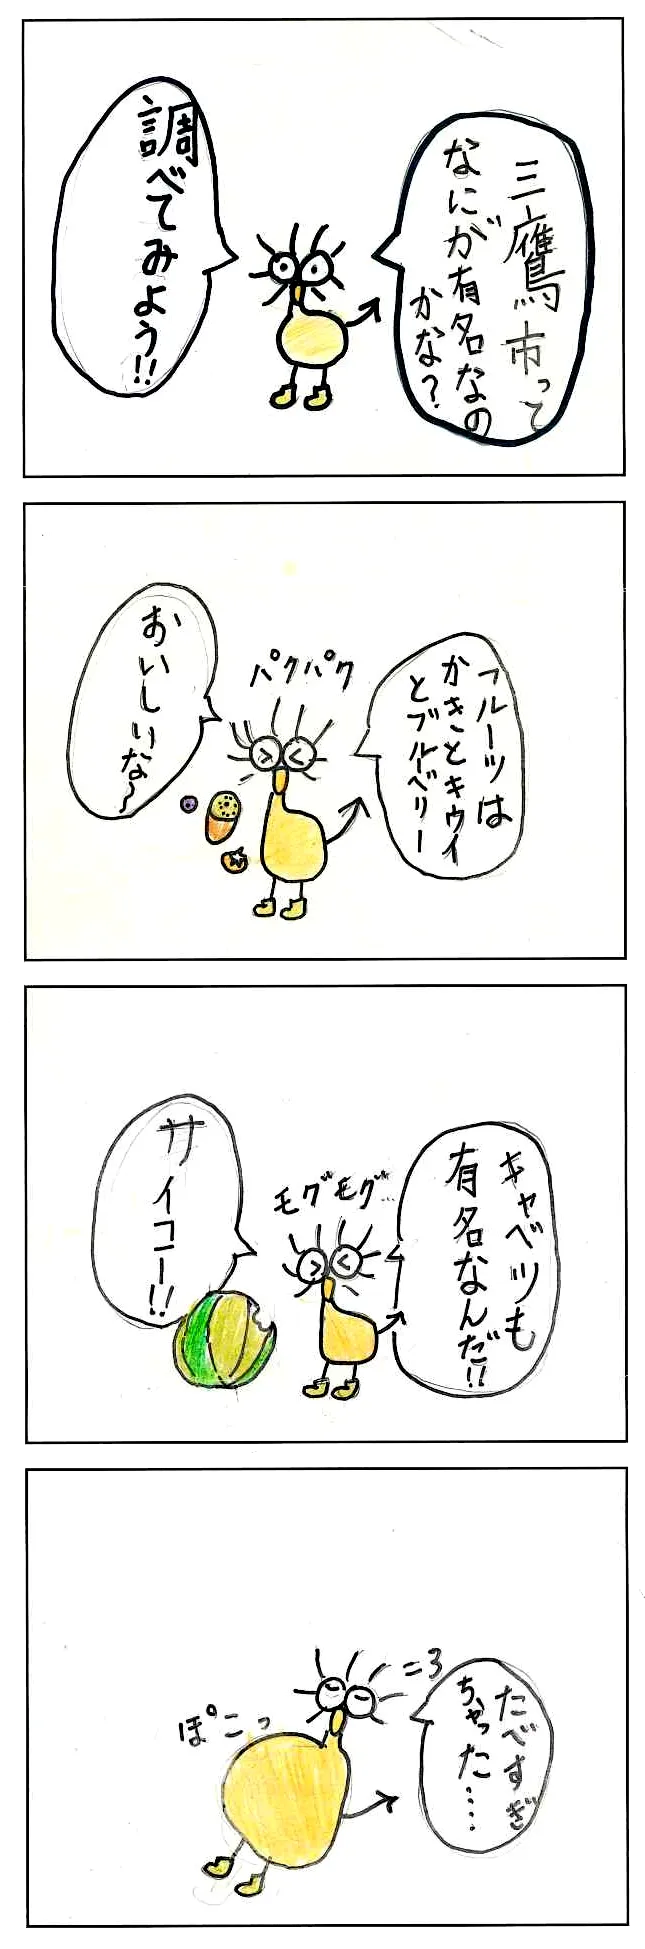 三鷹市って
なにが有名なの
かな?
調べてみよう!!
フルーツは
かきとキウイ
とブルーベリー
パクパク
おいしいな〜
キャベツも
有名なんだ!!
モグモグ…
サイコー!!
たべすぎ
ちゃった……
=3
ぽこっ